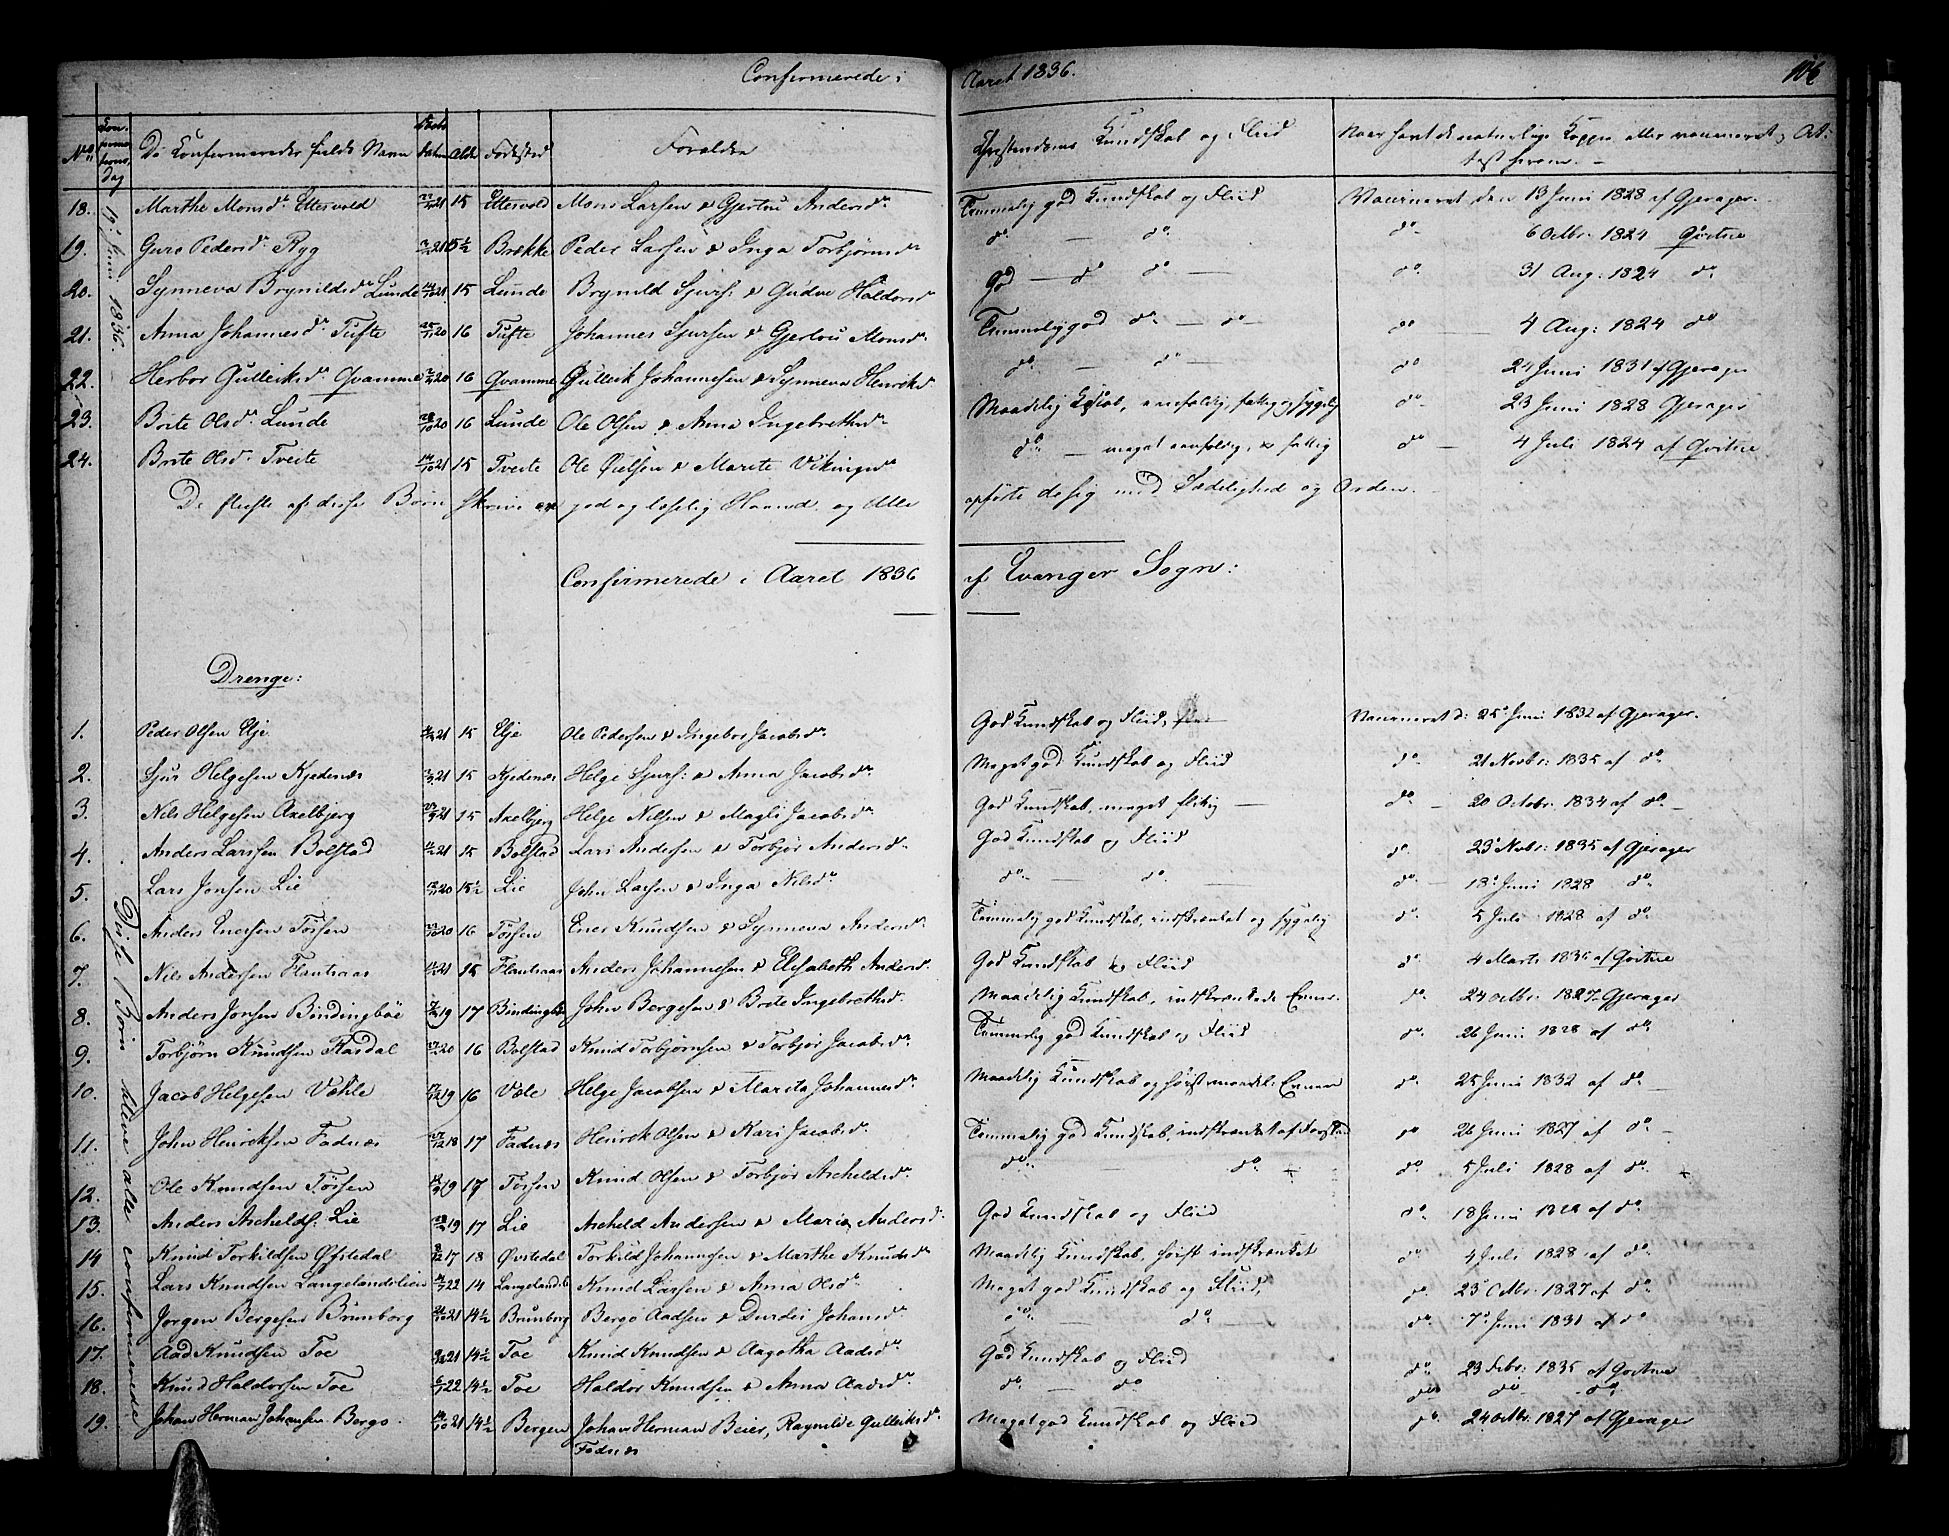 Confirmerede i Aaret 1836. 106
No. De Confirmeredes fulde Navn Alder Fødested Forældre Christendoms Kundskab og Fliid Naar havt de naturlige Kopper eller vaccineret,
18. Marthe Monsdr Ettesvold 21 15 Ettesvold Mons Larsen & Gjertru Andersdr Temmelig god Kundskab og Fliid Vaccineret den 13 Juni 1828 af Gjerager.
19. Guro Pedersdr Ryg 21 15½ Brekke Peder Larsen & Inga Torbjørnsdr do — do do 6 Octbr. 1824 Qvitne
20. Synneva Brynildsdr Lunde 21 15 Lunde Brynild Sjurs: & Gudve Haldorsdr God — do do — do 31 Aug: 1824 do
21. Anna Johannesdr Tufte 20 16 Tufte Johannes Sjursen & Gjertru Monsdr Temmelig god do — do do 4 Aug: 1824 do
22. Herbor Gulleiksdr Qvamme 20 16 Qvamme Gulleik Johannesen & Synneva Henriksdr do — do — do 24 Juni 1831 af Gjerager
23. Brite Olsdr Lunde 20 16 Lunde Ole Olsen & Anna Ingebrethsdr Maadelig Kdskab, eenfoldig, fattig og sygelig do 23 Juni 1828 Gjerager
24. Brite Olsdr Tveite 21 15 Tveite Ole Olsen & Marite Vikingsdr do — meget eenfoldig, & fattig do — 4 Juli 1824 af Qvitne
De fleeste af disse Børn skrive en god og læselig Haand og Alle opførte de sig med Sædelighed og Orden.
17 Juni 1836.
Confirmerede i Aaret 1836 af Evanger Sogn:
Drenge:
1. Peder Olsen Elje 21 15 Elje Ole Pedersen & Ingebor Jacobsdr God Kundskab og Fliid, Vaccineret d: 25 Juni 1832 af Gjerager.
2. Sjur Helgesen Kjedenæs 21 15 Kjedenæs Helge Sjurs: & Anna Jacobsdr Meget god Kundskab og Fliid do 21 Novbr: 1835 af do
3. Nils Helgesen Axelbjerg 21 15 Axelbjerg Helge Nilsen & Magli Jacobsdr God Kundskab, meget flitig — do — 20 Octobr. 1834 af do —
4. Anders Larssen Bolstad 21 15 Bolstad Lars Andersen & Torbjør Andersdr God Kundskab og Fliid do 23 Novbr: 1835 af Gjerager
5. Lars Jonsen Lie 20 15½ Lie John Larsen & Inga Nilsdr do — do — do — 18 Juni 1828 do
6. Anders Enersen Tørsen 20 16 Tørsen Ener Knudsen & Synneva Andersdr Temmelig god Kundskab, indskrænket og sygelig do 5 Juli 1828 af do
7. Nils Andersen Flautraas 21 15 Flautraas Anders Johannesen & Elisabeth Andersd. God Kundskab og Fliid do 4 Marts 1835 af Qvitne
8. Anders Jonsen Bindingbøe 19 17 Bindingbøe John Bergesen & Brite Ingebrethsdr Maadelig Kundskab, indskrænkede Evner. do 24 Octbr. 1827 Gjerager
9. Torbjørn Knudsen Flasdal 20 16 Bolstad Knud Torbjørnsen & Torbjør Jacobsdr Temmelig god Kundskab og Fliid do 26 Juni 1828 af do
10. Jacob Helgesen Væhle 19 16 Væle Helge Jacobsen & Marita Johannesdr Maadelig Kundskab og høist maadel: Evner do 25 Juni 1832 af do —
11. John Henriksen Fadnæs 18 17 Fadnæs Henrik Olsen & Kari Jacobsdr Temmelig god Kundskab, indskrænket af Forstand do 26 Juni 1827 af do —
12. Ole Knudsen Tørsen 19 17 Tørsen Knud Olsen & Torbjør Ascheldsdr do — do do 5 Juli 1828 af do
13. Anders Ascheldf. Lie 19 17 Lie Ascheld Andersen & Maria Andersd. God Kundskab og Fliid do 18 Juni 1828 af do
14 Knud Torkildsen Øfstedal 17 18 Øvstedal Torkild Johannesen & Marthe Knudsdr Maadelig Kundskab, høist indskrænket do 4 Juli 1828 af do
15. Lars Knudsen Langelandsleien 22 14 Langelands Knud Larsen & Anna Olsdr Meget god Kundskab og Fliid, do 23 Octbr. 1827 af do
16. Jørgen Bergesen Brunborg 21 14½ Brunborg Berge Aadsen & Durdei Johansdr do — do — do 7 Juni 1831 af do
17. Aad Knudsen Toe 21 14½ Toe Knud Knudsen & Aagotha Aadsdr God Kundskab og Fliid do 23 Febr: 1835 af Qvitne
18. Knud Haldorsen Toe 22 14½ Toe Haldor Knudsen & Anna Aadsdr do — do do do do
19. Johan Herman Johansen Bergo 21 14½ Bergen Johan Herman Beier, Ragnilde Gulleiksdr Fadnæs Meget god Kundskab og Fliid do 24 Octbr. 1827 af Gjerager
Disse Børn bleve alle confirmerede